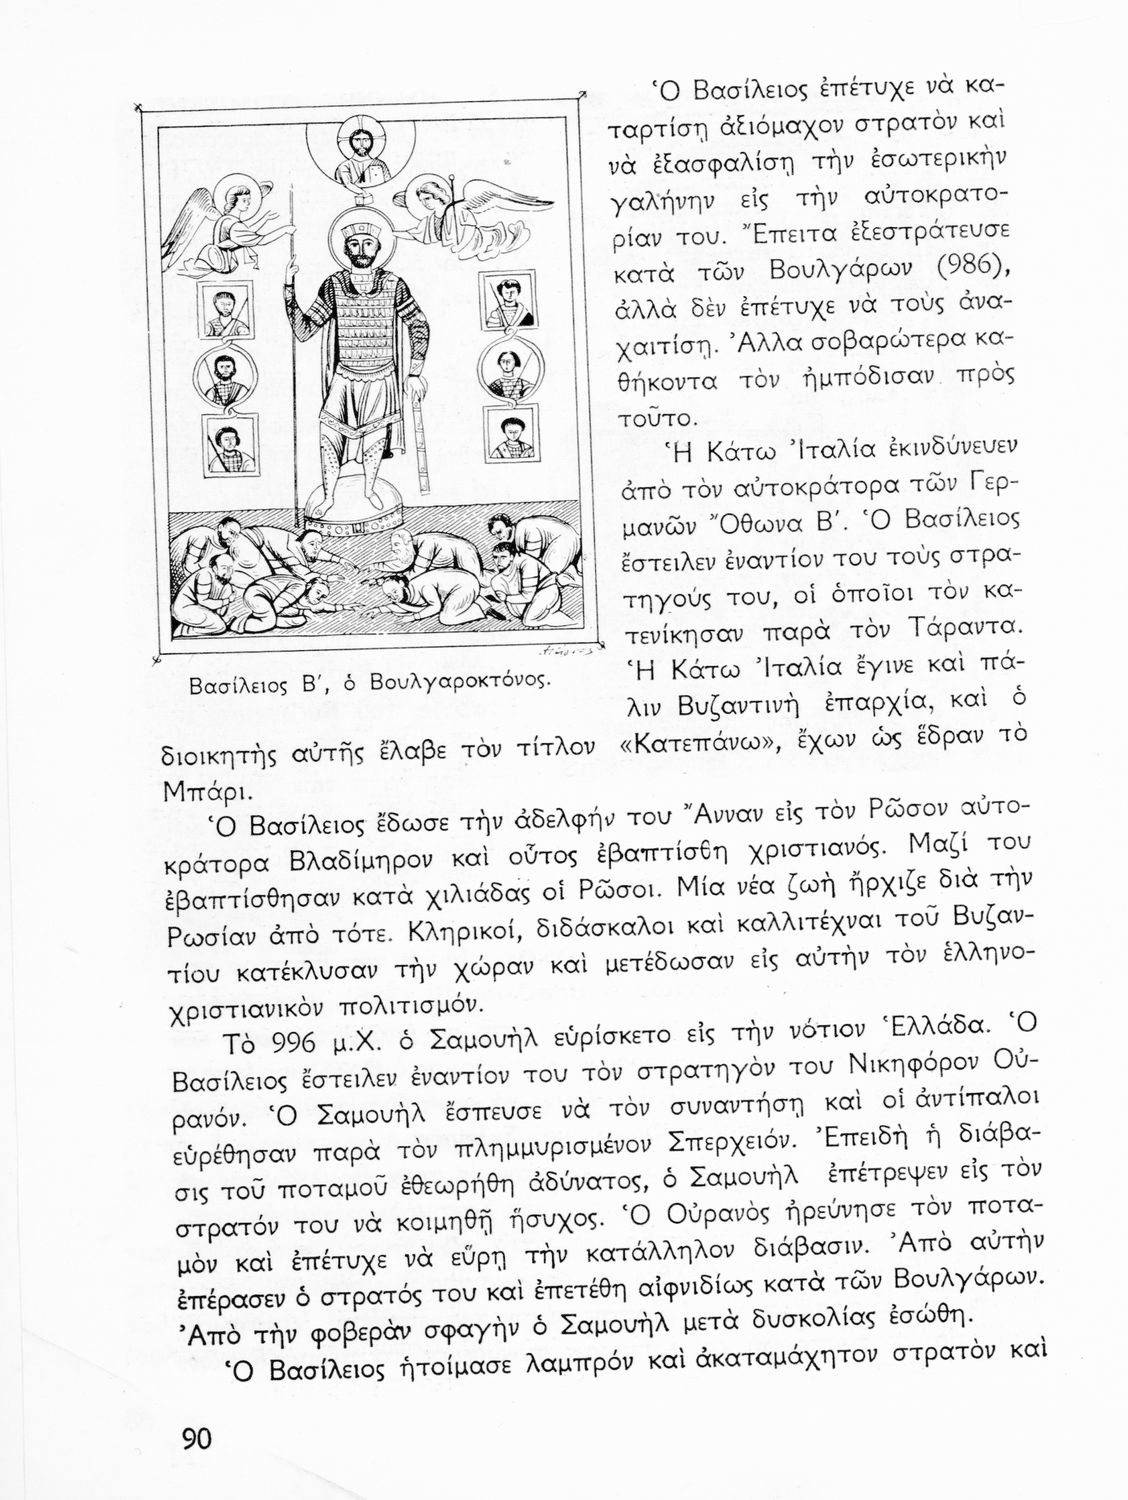 Ὁ Βασίλειος ἐπέτυχε νὰ κα-
ταρτίσῃ ἀξιόμαχον στρατὸν καὶ
νὰ ἐξασφαλίσῃ τὴν ἐσωτερικὴν
γαλήνην εἰς τὴν αὐτοκρατο-
ρίαν του. Ἔπειτα ἐξεστράτευσε
κατὰ τῶν Βουλγάρων (986),
ἀλλὰ δὲν ἐπέτυχε νὰ τοὺς ἀνα-
χαιτίσῃ. Ἄλλα σοβαρώτερα κα-
θήκοντα τὸν ἠμπόδισαν πρὸς
τοῦτο.
Ἡ Κάτω Ἰταλία ἐκινδύνευεν
ἀπὸ τὸν αὐτοκράτορα τῶν Γερ-
μανῶν Ὄθωνα Β′. Ὁ Βασίλειος
ἔστειλεν ἐναντίον του τοὺς στρα-
τηγούς του, οἱ ὁποῖοι τὸν κα-
τενίκησαν παρὰ τὸν Τάραντα.
Ἡ Κάτω Ἰταλία ἔγινε καὶ πά-
λιν Βυζαντινὴ ἐπαρχία, καὶ ὁ
Βασίλειος Β′, ὁ Βουλγαροκτόνος.
διοικητὴς αὐτῆς ἔλαβε τὸν τίτλον «Κατεπάνω», ἔχων ὡς ἕδραν τὸ
Μπάρι.
Ὁ Βασίλειος ἔδωσε τὴν ἀδελφήν του Ἄνναν εἰς τὸν Ρῶσον αὐτο-
κράτορα Βλαδίμηρον καὶ οὗτος ἐβαπτίσθη χριστιανός. Μαζί του
ἐβαπτίσθησαν κατὰ χιλιάδας οἱ Ρῶσοι. Μία νέα ζωὴ ἤρχιζε διὰ τὴν
Ρωσίαν ἀπὸ τότε. Κληρικοί, διδάσκαλοι καὶ καλλιτέχναι τοῦ Βυζαν-
τίου κατέκλυσαν τὴν χώραν καὶ μετέδωσαν εἰς αὐτὴν τὸν ἑλληνο-
χριστιανικὸν πολιτισμόν.
Τὸ 996 μ.Χ. ὁ Σαμουὴλ εὑρίσκετο εἰς τὴν νότιον Ἑλλάδα. Ὁ
Βασίλειος ἔστειλεν ἐναντίον του τὸν στρατηγὸν του Νικηφόρον Οὐ-
ρανόν. Ὁ Σαμουὴλ ἔσπευσε νὰ τὸν συναντήσῃ καὶ οἱ ἀντίπαλοι
εὑρέθησαν παρὰ τὸν πλημμυρισμένον Σπερχειόν. Ἐπειδὴ ἡ διάβα-
σις τοῦ ποταμοῦ ἐθεωρήθη ἀδύνατος, ὁ Σαμουὴλ ἐπέτρεψεν εἰς τὸν
στρατόν του νὰ κοιμηθῇ ἥσυχος. Ὁ Οὐρανὸς ἠρεύνησε τὸν ποτα-
μὸν καὶ ἐπέτυχε νὰ εὕρῃ τὴν κατάλληλον διάβασιν. Ἀπὸ αὐτὴν
ἐπέρασεν ὁ στρατός του καὶ ἐπετέθη αἰφνιδίως κατὰ τῶν Βουλγάρων.
Ἀπὸ τὴν φοβερὰν σφαγὴν ὁ Σαμουὴλ μετὰ δυσκολίας ἐσώθη.
Ὁ Βασίλειος ἡτοίμασε λαμπρόν καὶ ἀκαταμάχητον στρατὸν καὶ
90